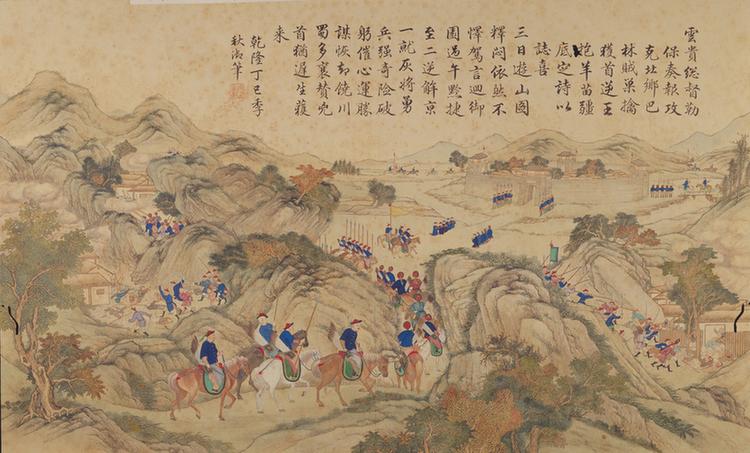 雲貴總督勒
保奏報攻
克北鄉巴
林賊巢擒
獲首逆王
抱羊苗疆
底定詩以
誌喜
三日遊山園
釋悶依然不
懌駕言迴御
園過午黔捷
至二逆解京
一就灰將勇
兵强奇險破
躬催心運勝
謀恢却饒川
蜀多裏贊兇
首猶遲生獲
來
乾隆丁巳季
秋御筆